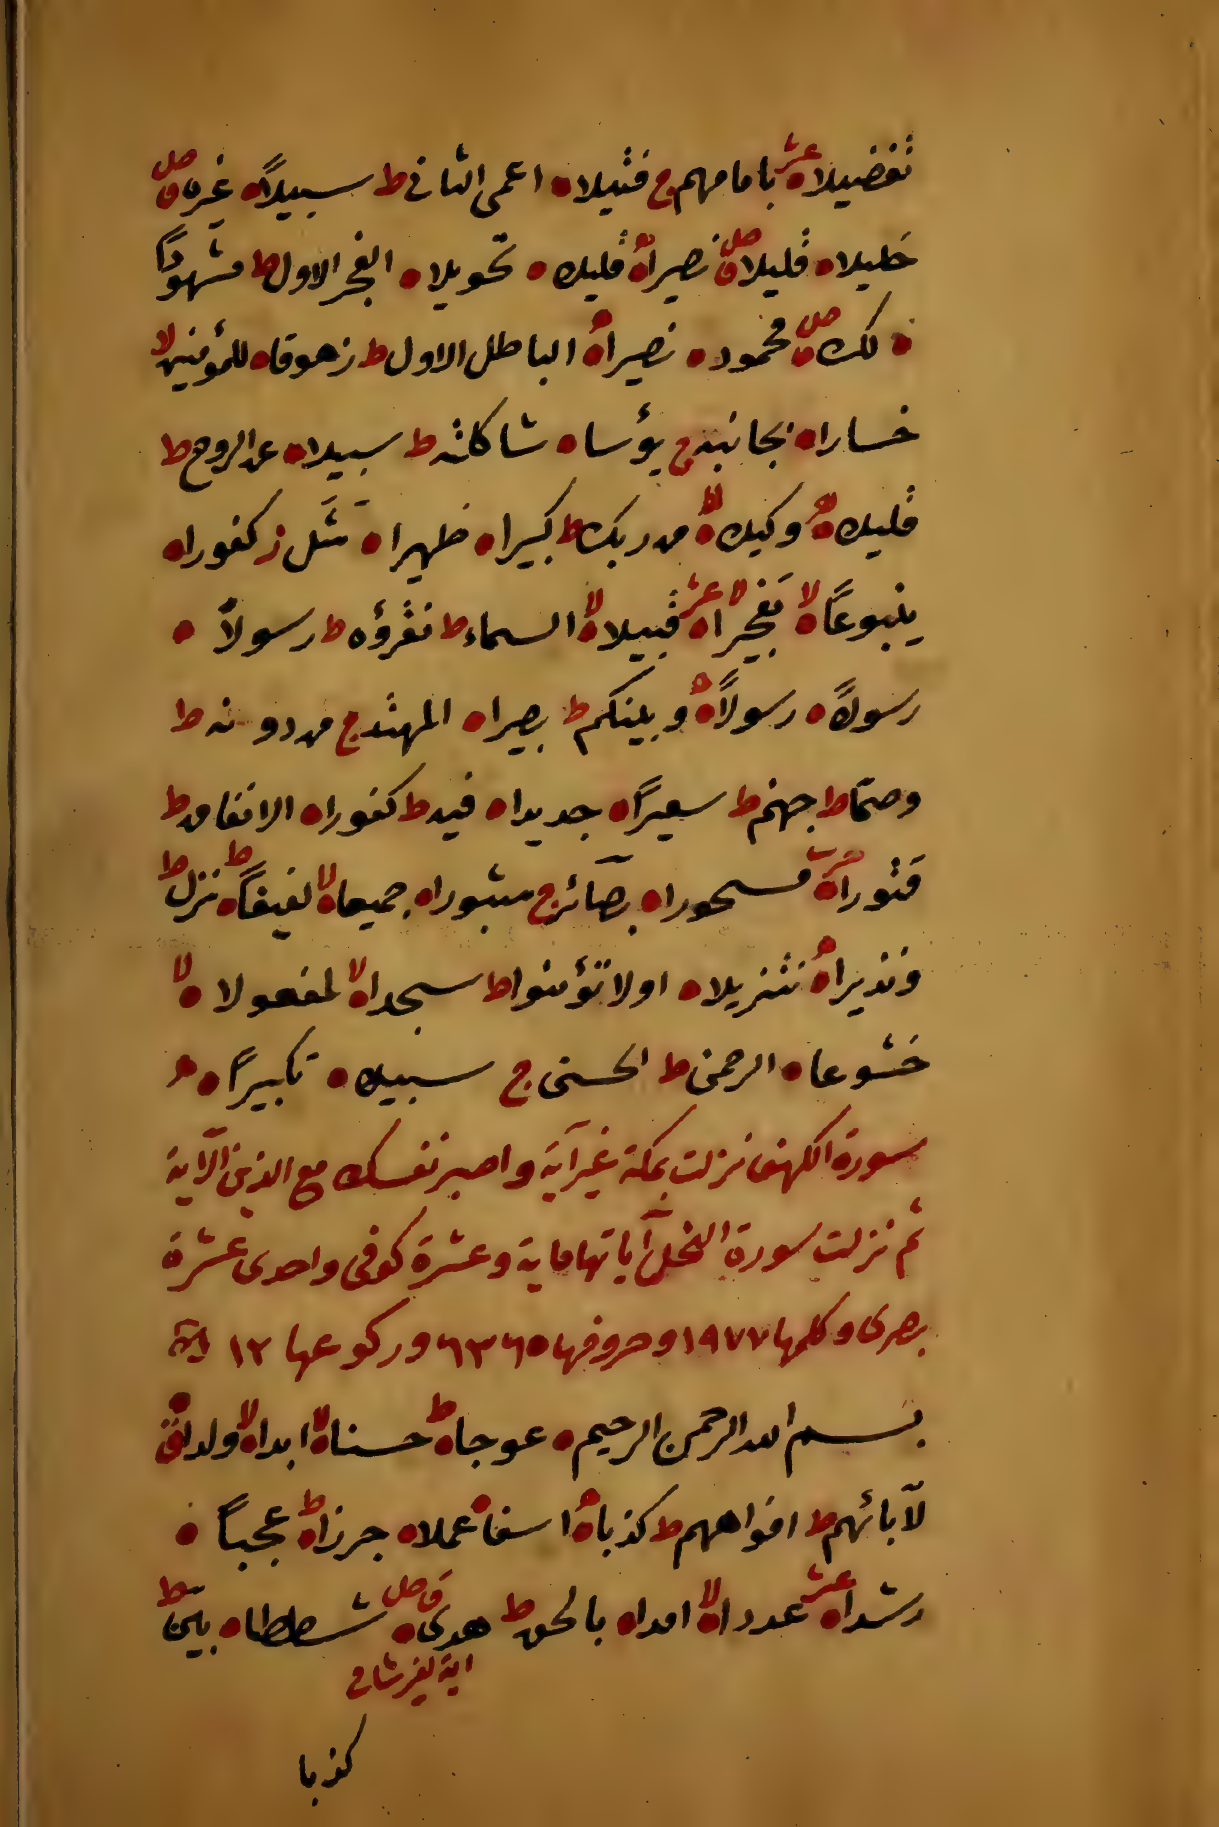 تفضيلاه عشر بامامهم ج فتيلاه اعمى الثانى ط سبيلاًه غيره ق صل
خليلاه قليلاه ق صل نصيراه قليلاه تحويلاه الفجر الاول ط مشهودًا
ه لك ق صل محموده نصيراه الباطل الاول ط زهوقاه للمؤمنين لا
خساراه بجانبه ج يؤساه شاكلته ط سبيلاه عن الروح ط
قليلاه وكيلاه لا من ربك ط كبيراه ظهيراه مَثَل ز كفوراه
ينبوعًاه لا تفجيراه لا عشر قبيلاه لا السماء ط نقرؤه ط رسولاً ه
رسولاًه رسولاًه وبينكم ط بصيراه المهتد ج من دونه ط
وصمّا ط جهنم ط سعيرًاه جديداه فيه ط كفوراه الانفاق ط
قتوراه مسحوراه بصآئر ج مثبوراه جميعاه لا لفيفًاه ط نزل ط
ونذيراه تنزيلاه اولا تؤمنوا ط سجداه لا لمفعولا ه لا
خشوعاه الرحمن ط الحسنى ج سبيلاه تكبيرًا ه
سورة الكهف نزلت بمكة غير آية واصبر نفسك مع الذين الآية
ثم نزلت سورة النحل آياتها ماية وعشرة كوفى واحدى عشرة
بصرى وكلمها ١٩٧٧ وحروفها ٦٣٦٥ وركوعها ١٢ اية
بسم الله الرحمن الرحيم ه عوجاه ط حسناه لا ابداه لا ولداه ق
لآبائهم ط افواههم ط كذباه اسفاه عملاه جرزاه ط عجباً ه
رشداه عشر عدداه لا امداه بالحق ط هدى ه ق صل شططاه بيّن ط
اية لغير شامى
كذبا